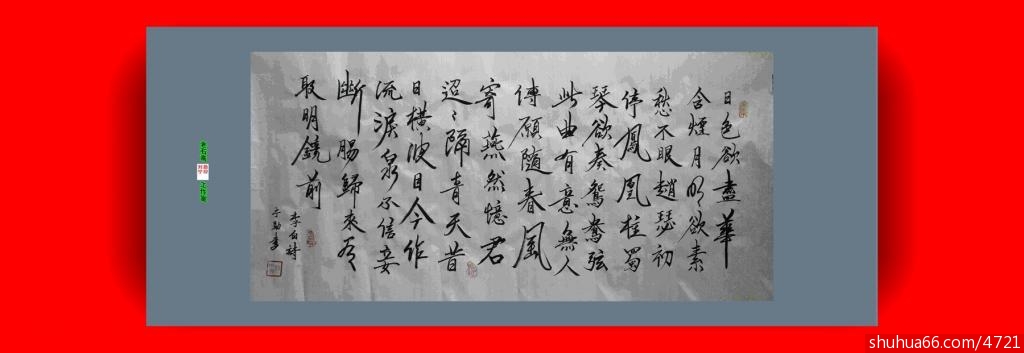 日色欲盡華
含煙月明欲素
愁不眠趙瑟初
停鳳凰柱蜀
琴欲奏鴛鴦弦
此曲有意無人
傳願随春風
寄燕然憶君
迢〻隔青天昔
日橫波目今作
流淚泉不信妾
斷腸歸來看
取明鏡前
李白詩
書
shuhua66.com/4721